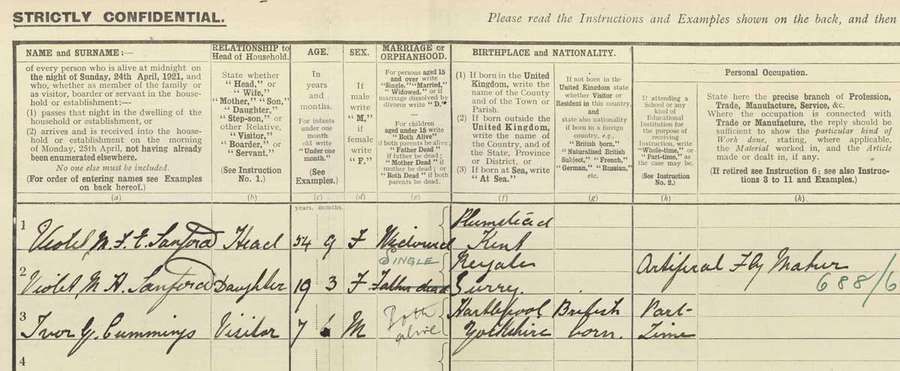 STRICTLY CONFIDENTIAL.
Please read the Instructions and Examples shown on the back, and then
NAME and SURNAME:—
of every person who is alive at midnight on
the night of Sunday, 24th April, 1921, and
who, whether as member of the family or
as visitor, boarder or servant in the house-
hold or establishment:—
(1) passes that night in the dwelling of the
household or establishment, or
(2) arrives and is received into the house-
hold or establishment on the morning
of Monday, 25th April, not having already
been enumerated elsewhere.
No one else must be included.
(For order of entering names see Examples
on back hereof.)
(a)
RELATIONSHIP to
Head of Household.
State whether
"Head," or
"Wife,"
"Mother," "Son,"
"Daughter,"
"Step-son," or
other Relative,
"Visitor,"
"Boarder," or
"Servant."
(See Instruction
No. 1.)
(b)
AGE.
In
years
and
months.
For infants
under one
month
old write
"Under one
month."
(See
Examples.)
(c)
SEX.
If
male
write
"M,"
if
female
write
"F."
(d)
MARRIAGE or
ORPHANHOOD.
For persons aged 15
and over write
"Single," "Married,"
"Widowed," or if
marriage dissolved by
divorce write "D."
For children
aged under 15 write
"Both Alive"
if both parents be alive;
"Father Dead"
if father be dead;
"Mother Dead" if
mother be dead; or
"Both Dead" if both
parents be dead.
(e)
BIRTHPLACE and NATIONALITY.
(1) If born in the United
Kingdom, write the
name of the County
and of the Town or
Parish.
(2) If born outside the
United Kingdom,
write the name of
the Country, and of
the State, Province
or District, or
(3) If born at Sea, write
"At Sea."
(f)
If not born in the
United Kingdom state
whether Visitor or
Resident in this country,
and
state also nationality
if born in a foreign
country, e.g.,
"British born,"
"Naturalised British
Subject," "French,"
"German," "Russian,"
etc.
(g)
If attending a
School or any
kind of
Educational
Institution for
the purpose of
receiving
Instruction, write
"Whole-time," or
"Part-time," as
the case may be.
(See Instruction
No. 2.)
(h)
Personal Occupation.
State here the precise branch of Profession,
Trade, Manufacture, Service, &c.
Where the occupation is connected with
Trade or Manufacture, the reply should be
sufficient to show the particular kind of
Work done, stating, where applicable,
the Material worked in, and the Article
made or dealt in, if any.
(If retired see Instruction 6; see also Instruc-
tions 3 to 11 and Examples.)
(k)
years. months.
1 Violet M. F. E. Sanford Head 54 9 F Widowed Plumstead Kent
2 Violet M H. Sanford Daughter 19 3 F SINGLE Father dead Reygate Surry. Artifical Fly Maker 688/6
3 Ivor G. Cummings Visitor 7 M Both alive Hartlepool Yorkshire British born. Part-Time
4